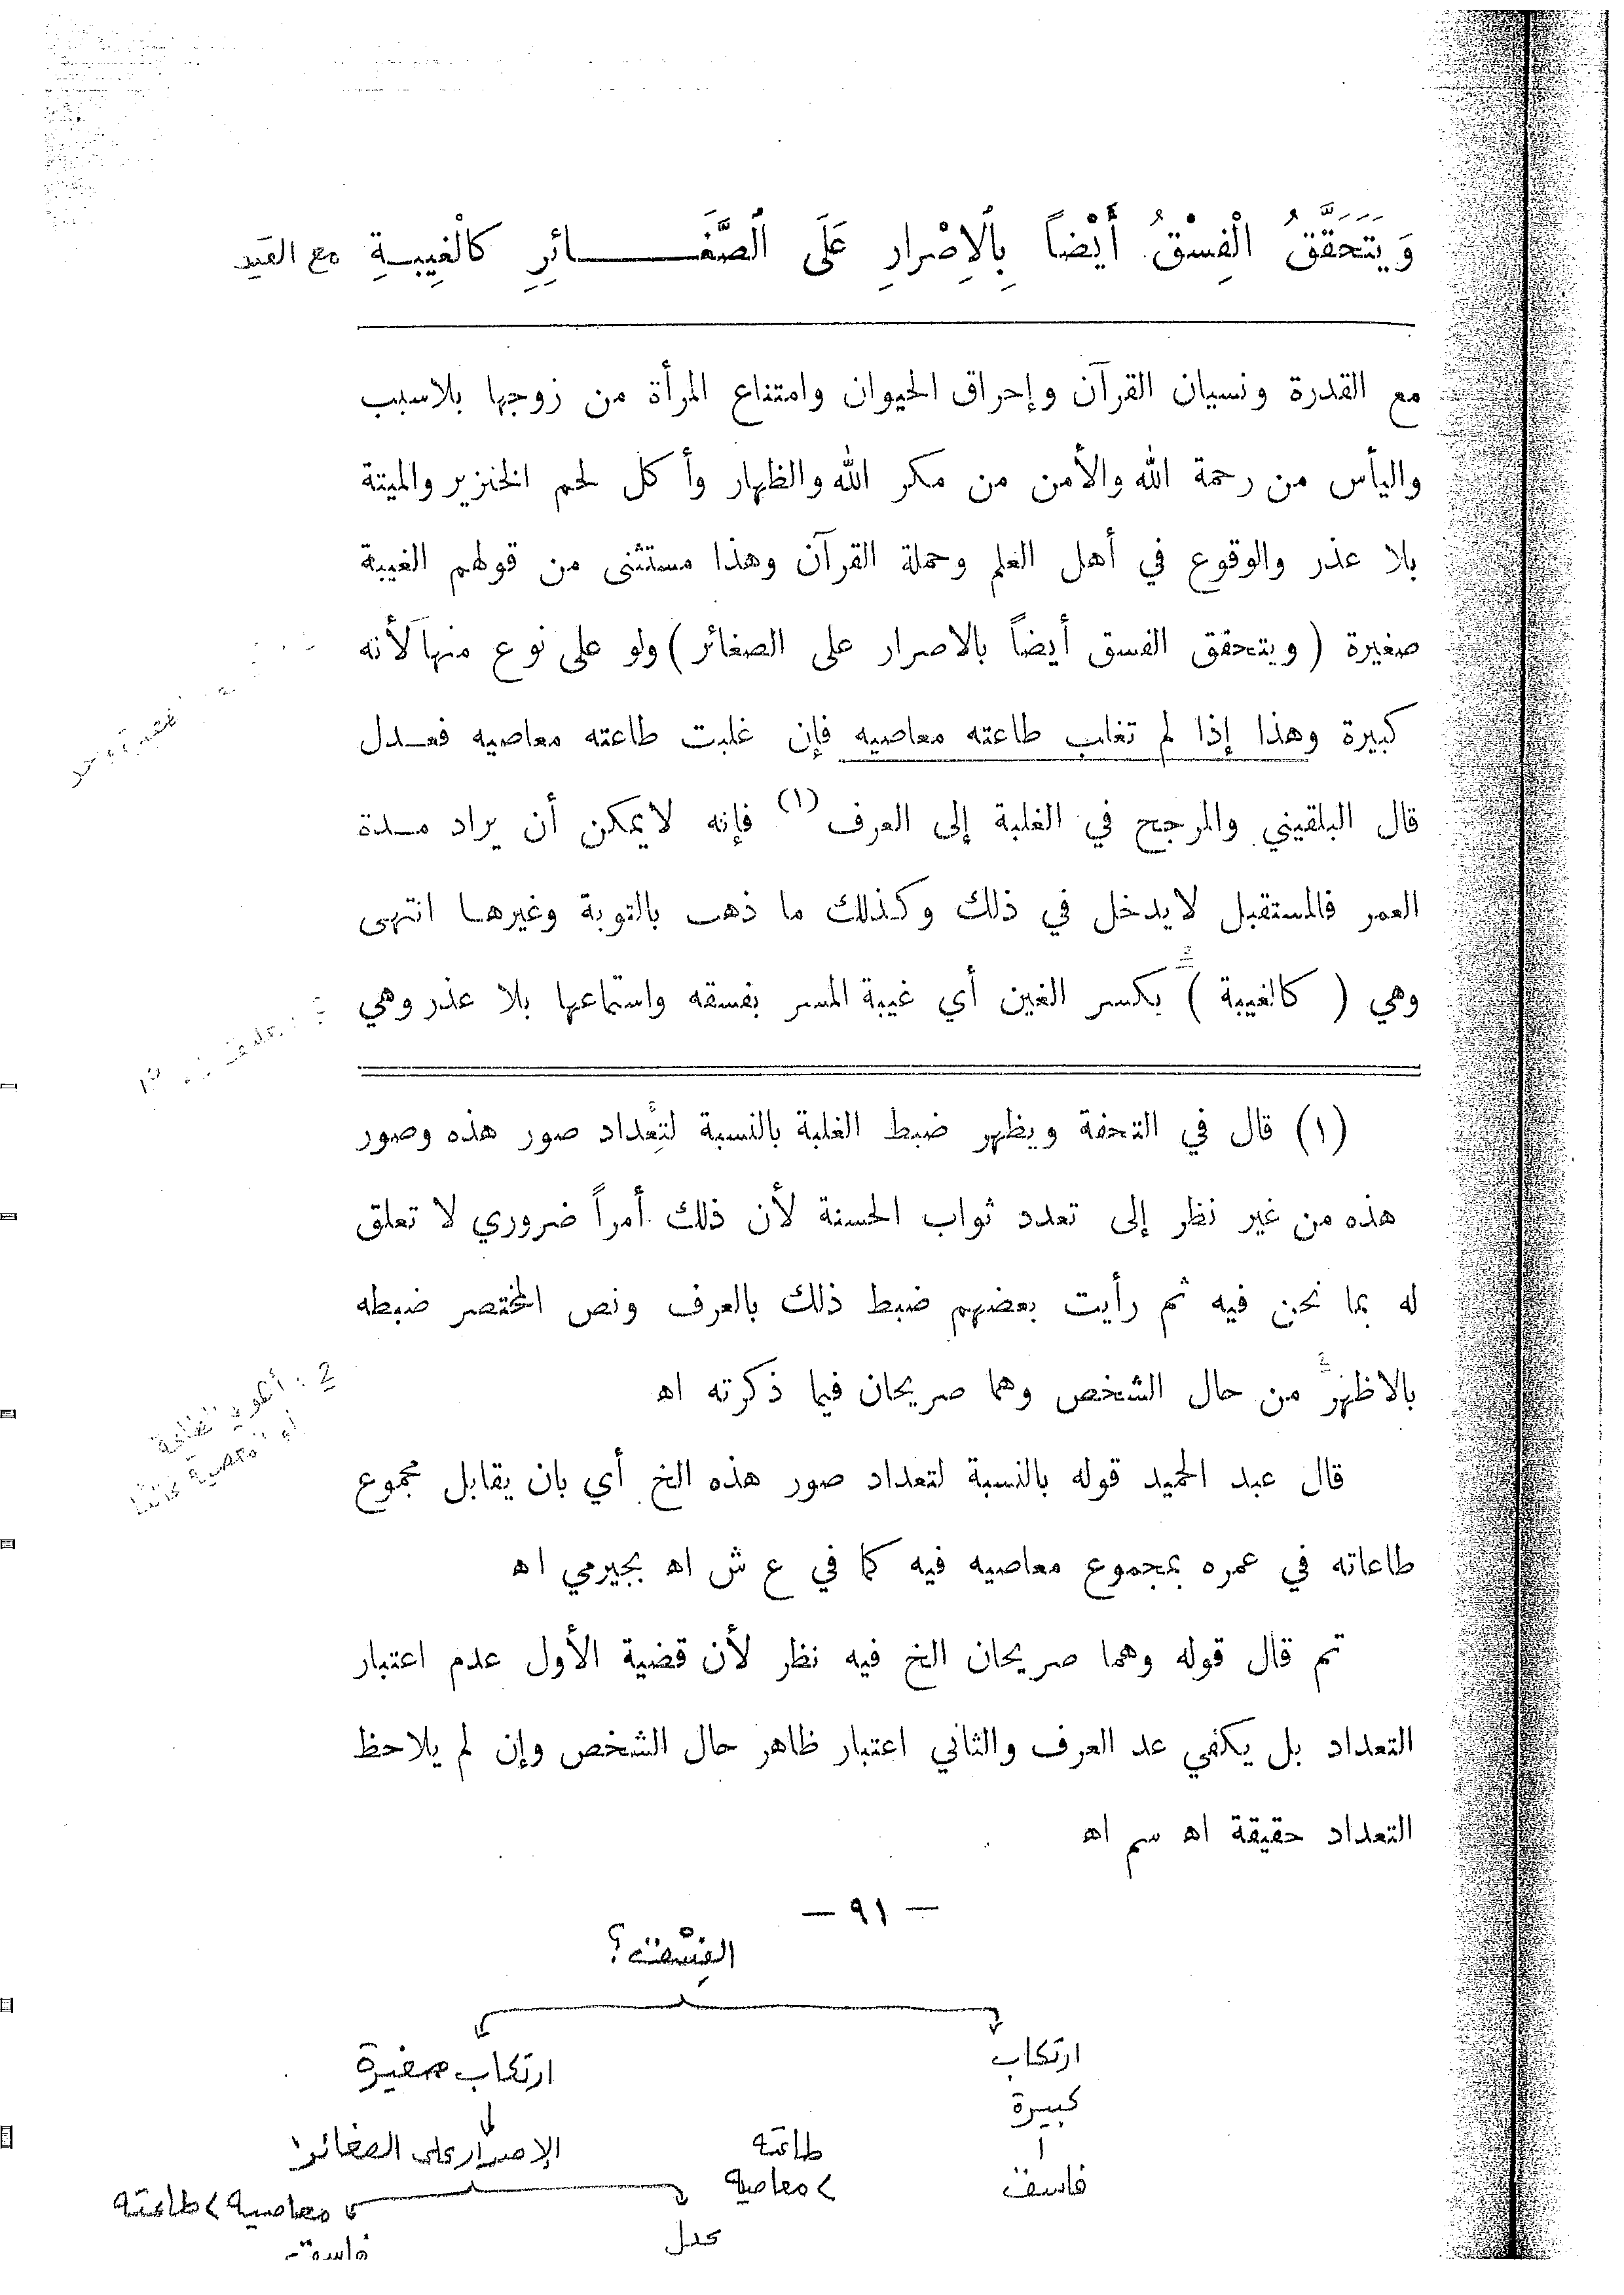 وَيَتَحَقَّقُ الْفِسْقُ أَيْضاً بِالْاِصْرارِ عَلَى الصَّغَائِرِ كَالْغِيبةِ مع القيد
مع القدرة ونسيان القرآن وإحراق الحيوان وامتناع المرأة من زوجها بلاسبب
واليأس من رحمة الله والأمن من مكر الله والظهار وأكل لحم الخنزير والميتة
بلا عذر والوقوع في أهل العلم وحملة القرآن وهذا مستثنى من قولهم الغيبة
صغيرة (ويتحقق الفسق أيضاً بالاصرار على الصغائر) ولو على نوع منها لأنه
كبيرة وهذا إذا لم تغلب طاعته معاصيه فإن غلبت طاعته معاصيه فعدل
قال البلقيني والمرجح في الغلبة إلى العرف (١) فإنه لايمكن أن يراد مدة
العمر فالمستقبل لايدخل في ذلك وكذلك ما ذهب بالتوبة وغيرها انتهى
وهي (كالغيبة) بكسر الغين أي غيبة المسر بفسقه واستماعها بلا عذر وهي
(١) قال في التحفة ويظهر ضبط الغلبة بالنسبة لتِعْداد صور هذه وصور
هذه من غير نظر إلى تعدد ثواب الحسنة لأن ذلك أمراً ضروري لا تعلق
له بما نحن فيه ثم رأيت بعضهم ضبط ذلك بالعرف ونص المختصر ضبطه
بالاظهر من حال الشخص وهما صريحان فيما ذكرته اه
قال عبد الحميد قوله بالنسبة لتعداد صور هذه الخ أي بان يقابل مجموع
طاعاته في عمره بمجموع معاصيه فيه كما في ع ش اه بجيرمي اه
تم قال قوله وهما صريحان الخ فيه نظر لأن قضية الأول عدم اعتبار
التعداد بل يكفي عد العرف والثاني اعتبار ظاهر حال الشخص وإن لم يلاحظ
التعداد حقيقة اه سم اه
— ٩١ —
الفِسْق؟
ارتكاب
كبيرة
فاسق
ارتكاب صغيرة
الإصرار على الصغائر
طاعته
> معاصيه
عدل
معاصيه > طاعته
فاسق